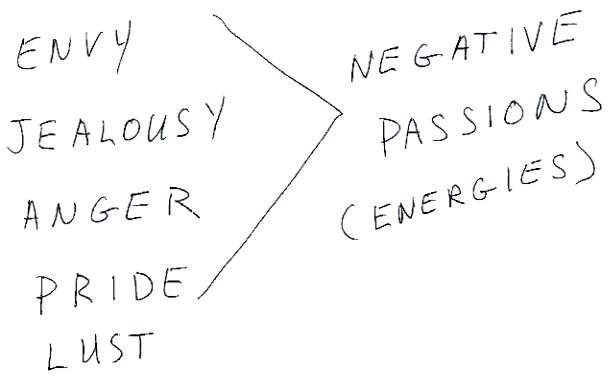 ENVY
JEALOUSY
ANGER
PRIDE
LUST
NEGATIVE
PASSIONS
(ENERGIES)